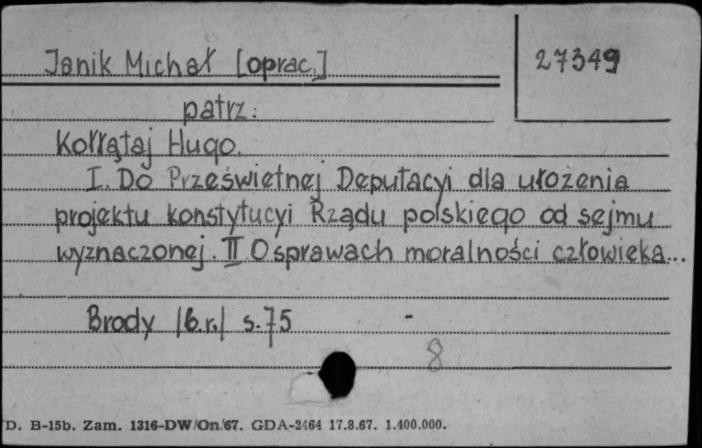 Janik Michał [oprac.]
27349
patrz:
Kołłątaj Hugo.
I. Do Prześwietnej Deputacyi dla ułożenia
projektu konstytucyi Rządu polskiego od sejmu
wyznaczonej. II O sprawach moralności człowieka...
Brody /b.r./ s. 75 -
8
D. B-15b. Zam. 1316-DW/On/67. GDA-2464 17.8.67. 1.400.000.